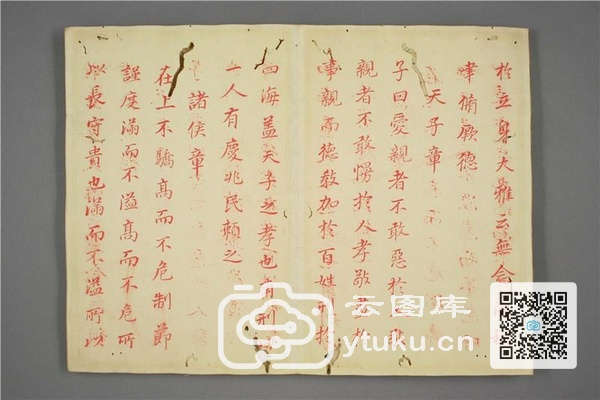 於立身大雅云無念
聿脩厥德
天子章
子曰愛親者不敢惡於
親者不敢慢於人孝敬
事親而德敎加於百姓刑於
四海蓋天子之孝也甫刑
一人有慶兆民賴之
諸侯章
在上不驕高而不危制節
謹度滿而不溢高而不危所
以長守貴也滿而不溢所以
云图库
ytuku.cn